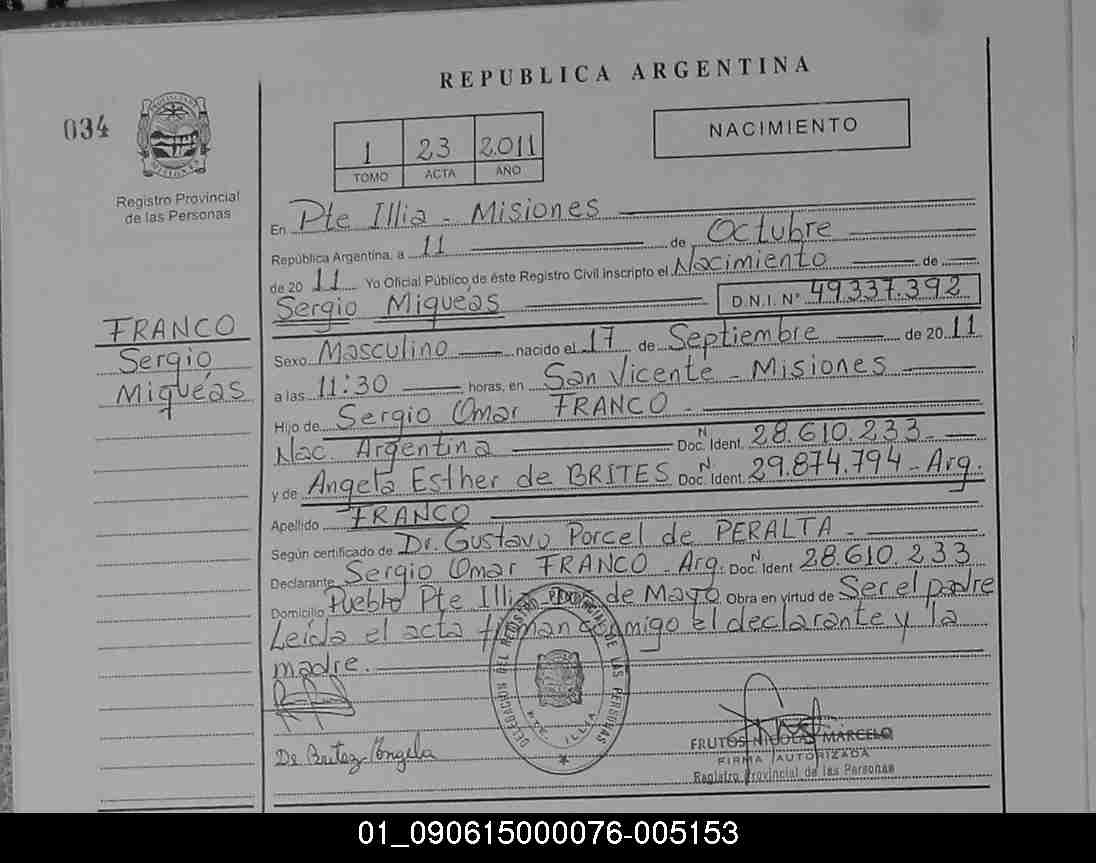 REPUBLICA ARGENTINA
034
PROVINCIA DE
MISIONES
Registro Provincial
de las Personas
1 23 2.011
TOMO ACTA AÑO
NACIMIENTO
En Pte Illia - Misiones
República Argentina, a 11 de Octubre
de 20 11 Yo Oficial Público de éste Registro Civil inscripto el Nacimiento de
Sergio Miqueas D.N.I. N° 49.337.392
FRANCO
Sergio
Miquéas
Sexo Masculino nacido el 17 de Septiembre de 20 11
a las 11:30 horas, en San Vicente - Misiones
Hijo de Sergio Omar FRANCO -
Nac. Argentina Doc. N. Ident. 28.610.233 -
y de Angela Esther de BRITES Doc. N. Ident. 29.874.794 - Arg.
Apellido FRANCO
Según certificado de Dr. Gustavo Porcel de PERALTA -
Declarante Sergio Omar FRANCO - Arg. Doc. N. Ident 28.610.233
Domicilio Pueblo Pte Illia de Mayo Obra en virtud de Ser el padre
Leída el acta firman conmigo el declarante y la
madre.
DELEGACION DEL REGISTRO PROVINCIAL DE LAS PERSONAS
PTE. ILLIA
De Britez Angela
FRUTOS NICOLAS MARCELO
FIRMA AUTORIZADA
Registro Provincial de las Personas
01_090615000076-005153